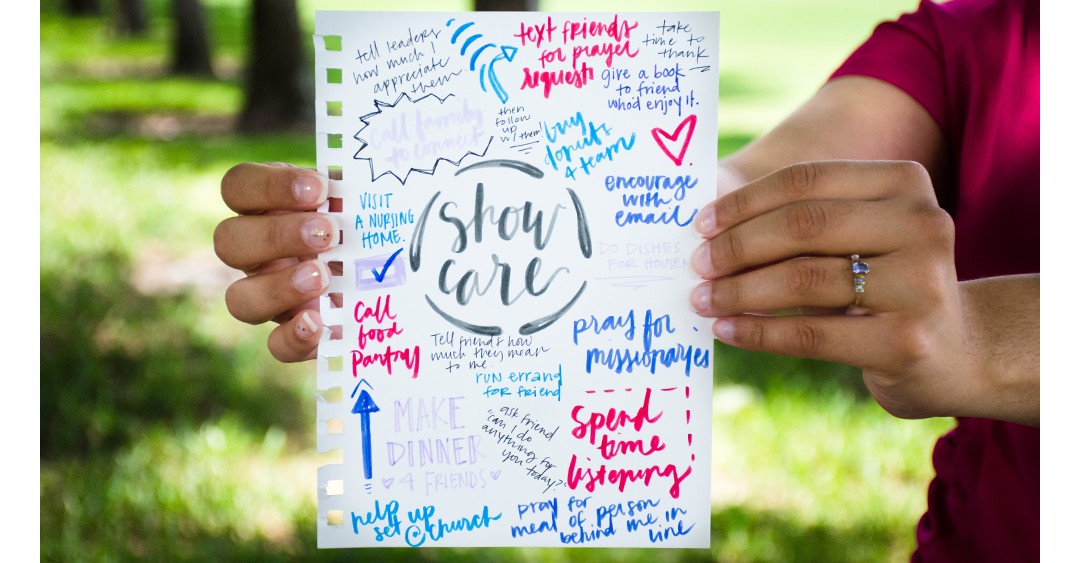 tell leaders
how much I
appreciate
them
text friends
for prayer
requests
take
time to
thank
give a book
to friend
who'd enjoy it.
call family
to connect
then
follow
up
w/ them!
buy
donuts
4 team
VISIT
A NURSING
HOME.
encourage
with
email
show
care
DO DISHES
FOR HOUSE
call
food
pantry
Tell friends how
much they mean
to me.
pray for
missionaries
run errand
for friend
MAKE
DINNER
4 FRIENDS
ask friend
"can I do
anything for
you today?"
spend
time
listening!
help set up
@ church
pray for
meal of person
behind me in
line